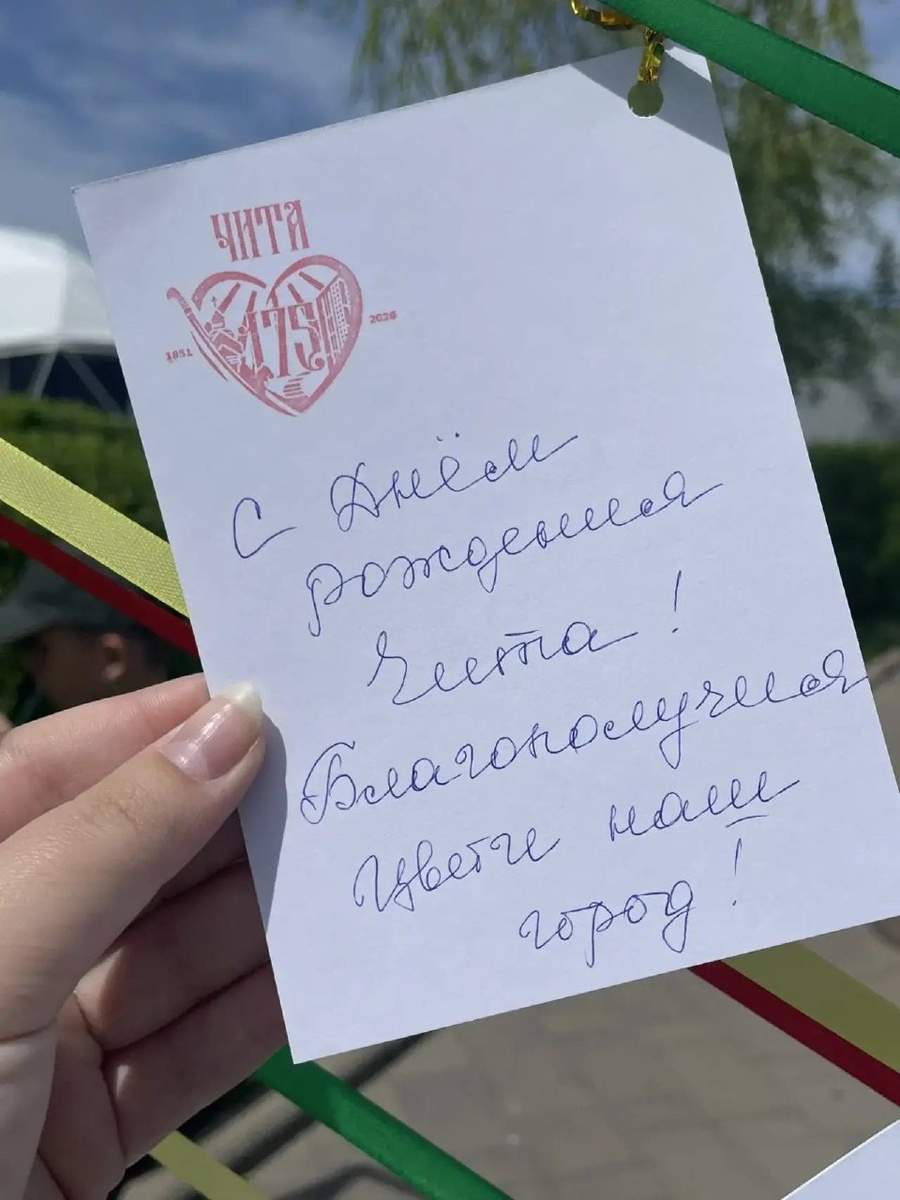 ЧИТА
175
1851 2026
С Днём
рождения
Чита!
Благополучия
Цвети наш
город!